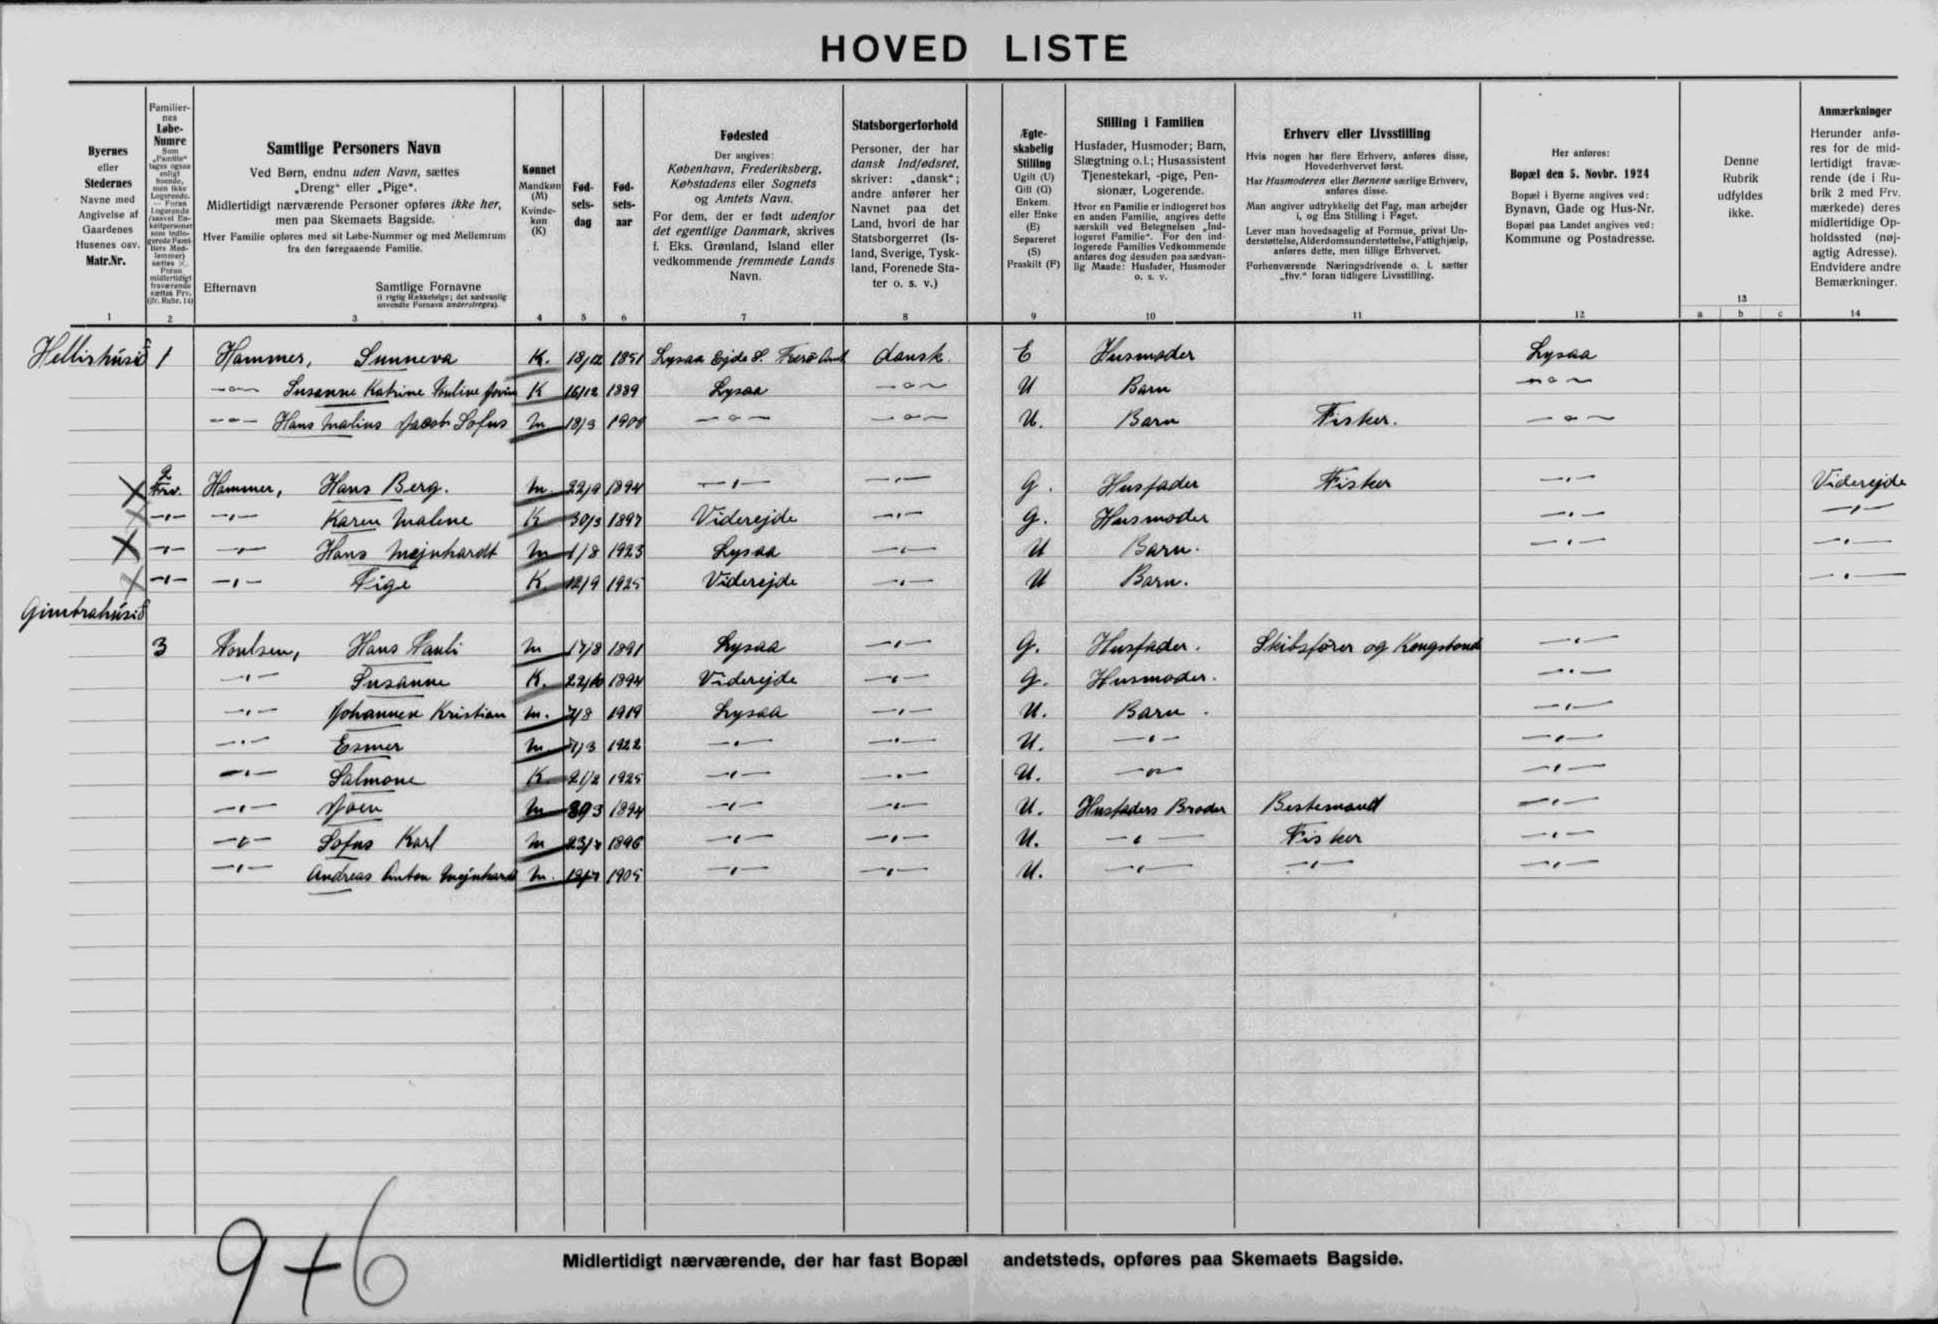 HOVED LISTE
Byernes
eller
Stedernes
Navne med
Angivelse af
Gaardenes
Husenes osv.
Matr.Nr.
1
Familier-
nes
Løbe-
Numre
2
Samtlige Personers Navn
Ved Børn, endnu uden Navn, sættes
„Dreng“ eller „Pige“.
Midlertidigt nærværende Personer opføres ikke her,
men paa Skemaets Bagside.
Hver Familie opføres med sit Løbe-Nummer og med Mellemrum
fra den foregaaende Familie.
Efternavn Samtlige Fornavne
(i rigtig Rækkefølge; det sædvanlig
anvendte Fornavn understreges).
3
Kønnet
Mandkøn
(M)
Kvinde-
køn
(K)
4
Fød-
sels-
dag
5
Fød-
sels-
aar
6
Fødested
Der angives:
København, Frederiksberg,
Købstadens eller Sognets
og Amtets Navn.
For dem, der er født udenfor
det egentlige Danmark, skrives
f. Eks. Grønland, Island eller
vedkommende fremmede Lands
Navn.
7
Statsborgerforhold
Personer, der har
dansk Indfødsret,
skriver: „dansk“;
andre anfører her
Navnet paa det
Land, hvori de har
Statsborgerret (Is-
land, Sverige, Tysk-
land, Forenede Sta-
ter o. s. v.)
8
Ægte-
skabelig
Stilling
Ugift (U)
Gift (G)
Enkem.
eller Enke
(E)
Separeret
(S)
Fraskilt (F)
9
Stilling i Familien
Husfader, Husmoder; Barn,
Slægtning o.l.; Husassistent
Tjenestekarl, -pige, Pen-
sionær, Logerende.
Hvor en Familie er indlogeret hos
en anden Familie, angives dette
særskilt ved Betegnelsen „Ind-
logeret Familie“. For den ind-
logerede Families Vedkommende
anføres dog desuden paa sædvan-
lig Maade: Husfader, Husmoder
o. s. v.
10
Erhverv eller Livsstilling
Hvis nogen har flere Erhverv, anføres disse,
Hovederhvervet først.
Har Husmoderen eller Børnene særlige Erhverv,
anføres disse.
Man angiver udtrykkelig det Fag, man arbejder
i, og Ens Stilling i Faget.
Lever man hovedsagelig af Formue, privat Un-
derstøttelse, Alderdomsunderstøttelse, Fattighjælp,
anføres dette, men tillige Erhvervet.
Forhenværende Næringsdrivende o. l. sætter
„fhv.“ foran tidligere Livsstilling.
11
Her anføres:
Bopæl den 5. Novbr. 1924
Bopæl i Byerne angives ved:
Bynavn, Gade og Hus-Nr.
Bopæl paa Landet angives ved:
Kommune og Postadresse.
12
Denne
Rubrik
udfyldes
ikke.
13
a b c
Anmærkninger
Herunder anfø-
res for de mid-
lertidigt fravæ-
rende (de i Ru-
brik 2 med Frv.
mærkede) deres
midlertidige Op-
holdssted (nøj-
agtig Adresse).
Endvidere andre
Bemærkninger.
14
Hellishúsið 1 Hammer, Sunneva K. 18/12 1851 Lysaa Ejde S. Færø Amt dansk. E Husmoder Lysaa
Susanne Katrine K 16/12 1889 Lysaa U Barn
Hans Malius Jacob Sofus M 18/3 U. Barn Fisker.
2
Frv. Hammer, Hans Berg. M. 22/9 1894 G. Husfader Fisker Viderejde
Karen Malene K 30/3 1897 Viderejde G. Husmoder
Hans Mejnhardt M 1/8 1923 Lysaa U Barn.
Pige K. 12/9 1925 Viderejde U Barn.
Gimbrahúsið
3 Poulsen, Hans Pauli M 17/8 1891 Lysaa G. Husfader. Skibsfører og Kongsbonde
Susanne K. 22/10 1894 Viderejde G. Husmoder.
Johannes Kristian M. 1919 Lysaa U. Barn.
Esmer M. 1922 U.
Salmone K. 21/2 1925 U.
Joen M 1894 U. Husfaders Broder Bestemand
Sofus Karl M 1896 U. Fisker
Andreas Anton Mejnhardt M. 1905 U.
9+6
Midlertidigt nærværende, der har fast Bopæl andetsteds, opføres paa Skemaets Bagside.